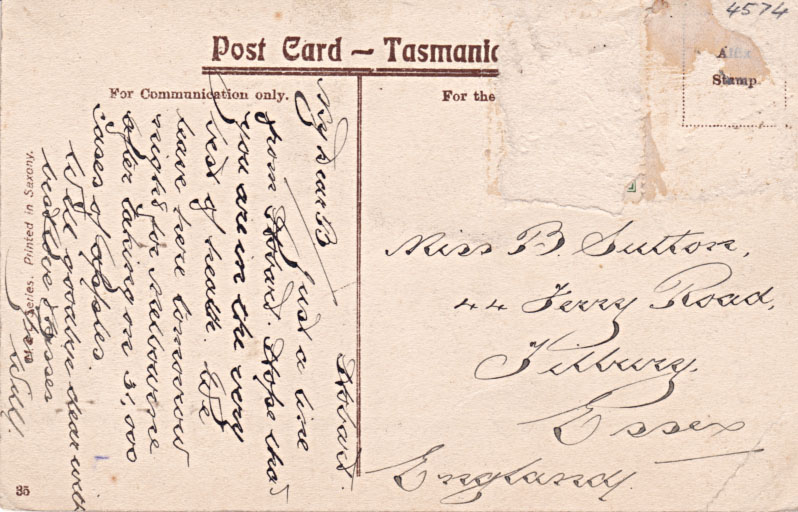 4574
Post Card – Tasmania
For Communication only.
For the
Stamp
Hobart.
My dear B
Just a line
from Hobart. Hope that
you are in the very
best of health. We
leave here tomorrow
night for Melbourne
after taking on 31,000
cases of apples.
Well goodbye dear with
best love & kisses
from
Will.
Miss B. Sutton,
44 Ferry Road,
Tilbury.
Essex
England.
Series. Printed in Saxony.
35